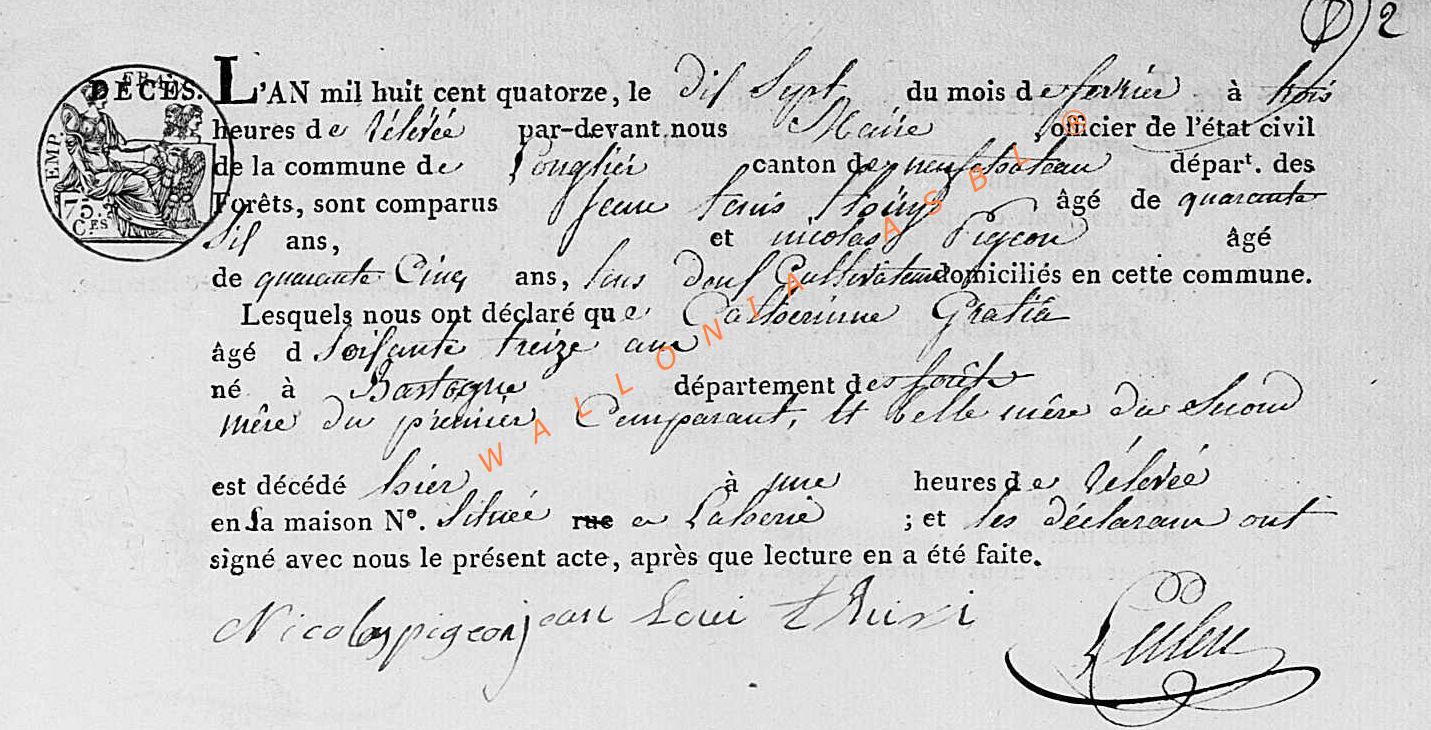 2
DÉCÈS. L'AN mil huit cent quatorze, le dix Sept du mois de fevrier à trois
heures de rélevée par-devant nous Maire officier de l'état civil
de la commune de Longlier canton de neufchateau départ. des
Forêts, sont comparus Jean Louis âgé de quarante
Six ans, et nicolas Pigeon âgé
de quarante Cinq ans, tous deux Cultivateurs domiciliés en cette commune.
Lesquels nous ont déclaré que Catherinne Gratia
âgé d Soixante treize ans
né à Bastogne département des forêts
mère du prémier Comparant, et belle mère du second
est décédé hier à une heures de rélevée
en sa maison N°. Située rue a Laherie ; et les déclarans ont
signé avec nous le présent acte, après que lecture en a été faite.
Nicolas pigeon jean Loui
EMP. FRA.
75. C.ES
WALLONIA ASBL ®